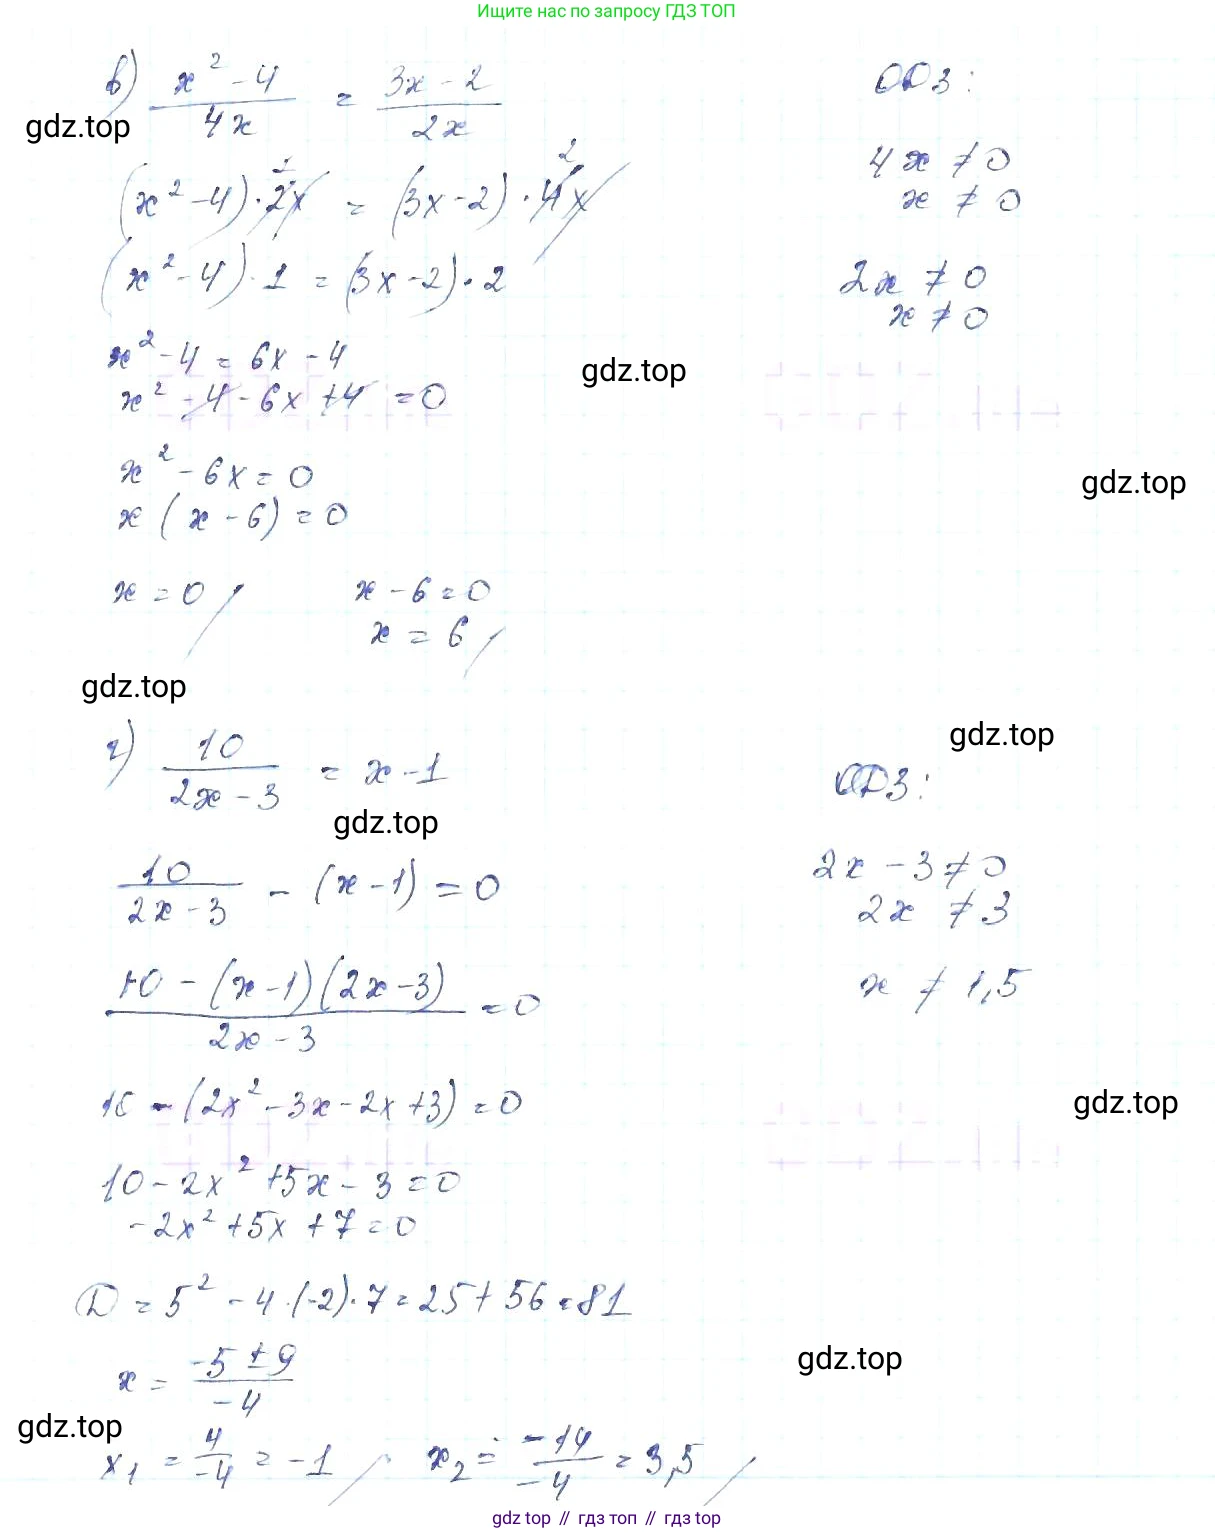 Ищите нас по запросу ГДЗ ТОП
в) (x² - 4)/(4x) = (3x - 2)/(2x)
ОДЗ:
gdz.top
4x ≠ 0
x ≠ 0
(x² - 4) · 2x = (3x - 2) · 4x
1 2
(x² - 4) · 1 = (3x - 2) · 2
2x ≠ 0
x ≠ 0
x² - 4 = 6x - 4
gdz.top
x² - 4 - 6x + 4 = 0
x² - 6x = 0
gdz.top
x (x - 6) = 0
x = 0 / x - 6 = 0
x = 6 /
gdz.top
г) 10/(2x - 3) = x - 1
gdz.top
ОДЗ:
gdz.top
10/(2x - 3) - (x - 1) = 0
2x - 3 ≠ 0
2x ≠ 3
(10 - (x - 1)(2x - 3))/(2x - 3) = 0
x ≠ 1,5
10 - (2x² - 3x - 2x + 3) = 0
gdz.top
10 - 2x² + 5x - 3 = 0
-2x² + 5x + 7 = 0
D = 5² - 4 · (-2) · 7 = 25 + 56 = 81
x = (-5 ± 9)/(-4)
gdz.top
gdz.top
x₁ = 4/(-4) = -1 / x₂ = (-14)/(-4) = 3,5 /
gdz top // гдз топ // gdz top